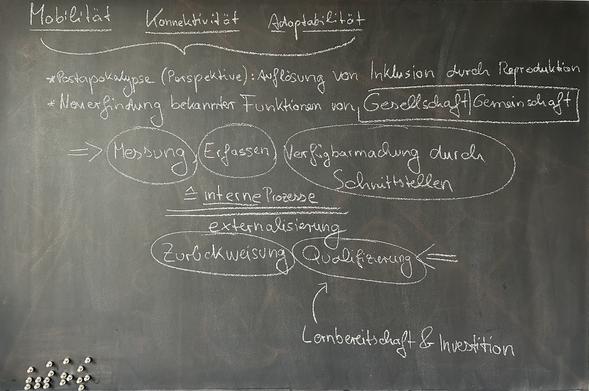 Mobilität Konnektivität Adaptabilität
* Postapokalypse (Perspektive): Auflösung von Inklusion durch Reproduktion
* Neuerfindung bekannter Funktionen von Gesellschaft | Gemeinschaft
=> Messung, Erfassen, Verfügbarmachung durch
Schnittstellen
≙ interne Prozesse
externalisierung
Zurückweisung Qualifizierung <=
Lernbereitschaft & Investition